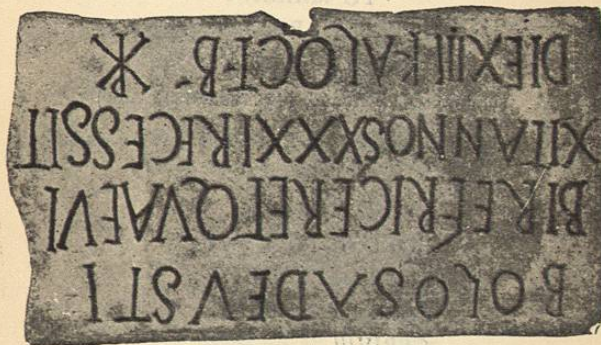 BOLOSADEVSTI
BIREFRIGERETQVAEVI
XITANNOSXXXIRECESSIT
DIEXIIIKALOCTB ☧